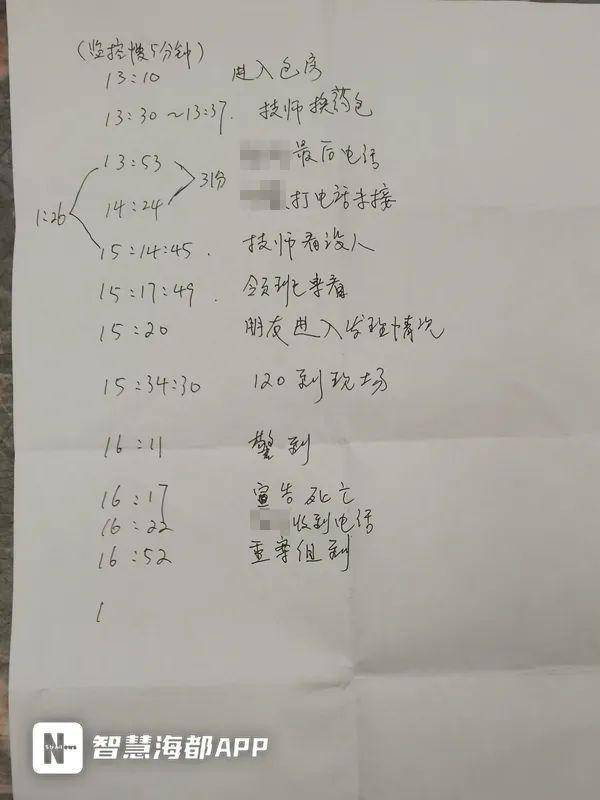 (监控慢5分钟)
13:10 进入包房
13:30~13:37. 技师换药包
13:53 最后电话
31分
14:24 打电话未接
1:26
15:14:45. 技师看没人
15:17:49. 领班来看
15:20 朋友进入发现情况
15:34:30 120到现场
16:11 警到
16:17 宣告死亡
16:22 收到电话
16:52 重案组到
1
N
Strait News
智慧海都APP